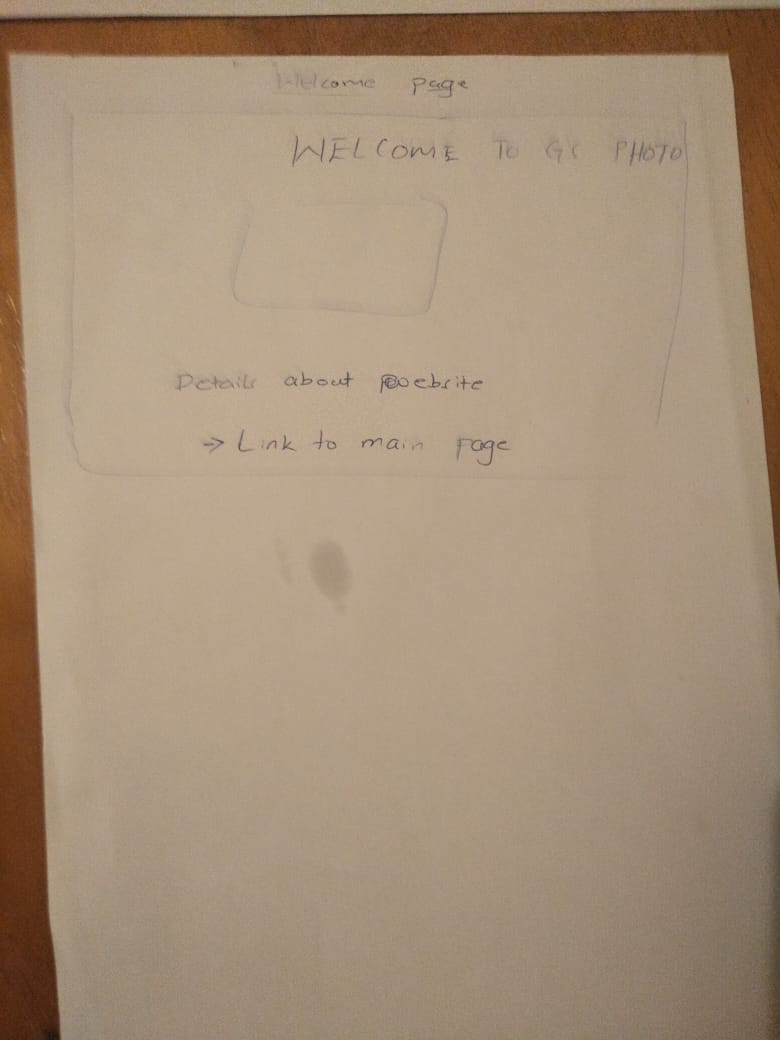 Welcome page
WELCOME TO GS PHOTO
Details about website
→ Link to main page